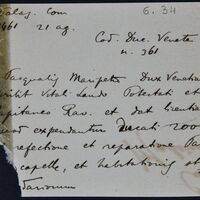 6.34
Calag. Com
1461 21 ag.
Cod. Duc. Veneto
n. 361
Pasqualis Maripetro Dux Venetiar
scribit Vitali Lando Potestati et
Capitaneo Rav. et dat licentia
quod expendantur Ducati 200
refectione et reparatione Pa
capelle, et habitationis et